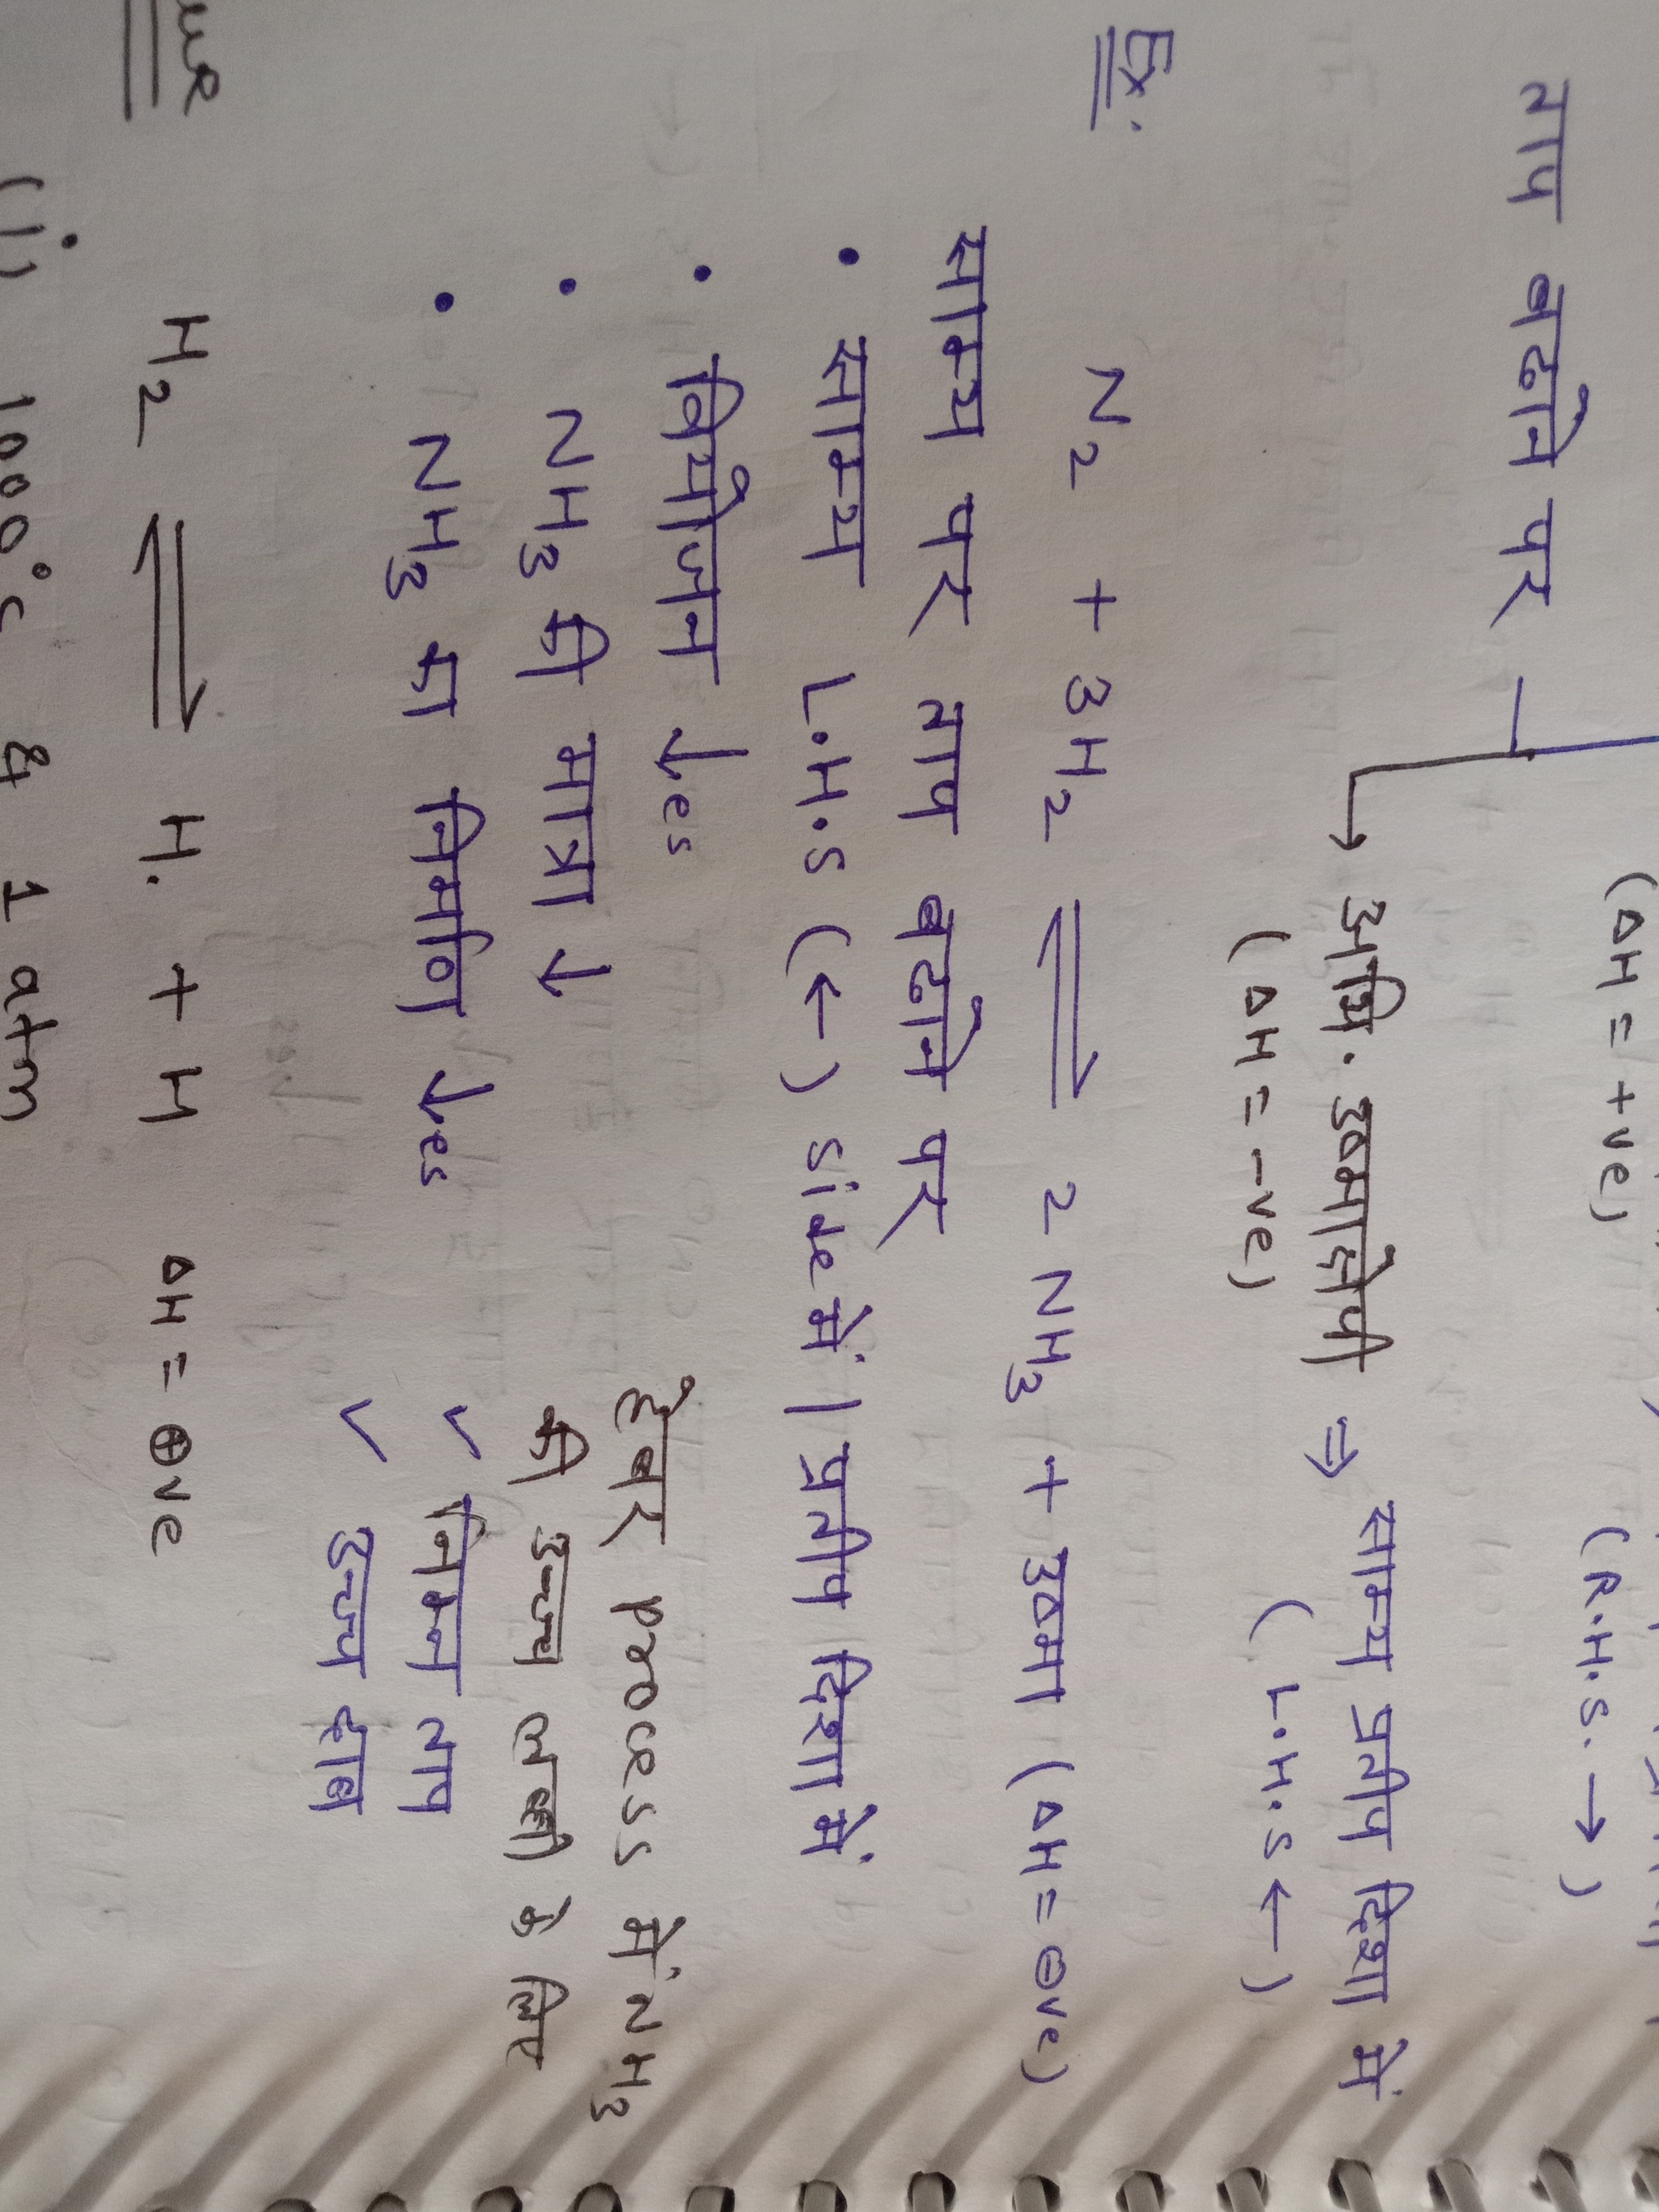 (ΔH = +ve) (R.H.S. →)
ताप बढाने पर
→ अभि. उष्माक्षेपी ⇒ साम्य प्रतीप दिशा में
(ΔH = -ve) (L.H.S ←)
Ex:
N₂ + 3H₂ ⇌ 2NH₃ + उष्मा (ΔH = ⊖ve)
साम्य पर ताप बढाने पर
• साम्य L.H.S (←) side में | प्रतीप दिशा में
• वियोजन ↓es
• NH₃ की मात्रा ↓
• NH₃ का निर्माण ↓es
हैबर process में NH₃
की उच्च लब्धी के लिए
✓ निम्न ताप
✓ उच्च दाब
H₂ ⇌ H. + H ΔH = ⊕ve
(i) 100°c & 1 atm